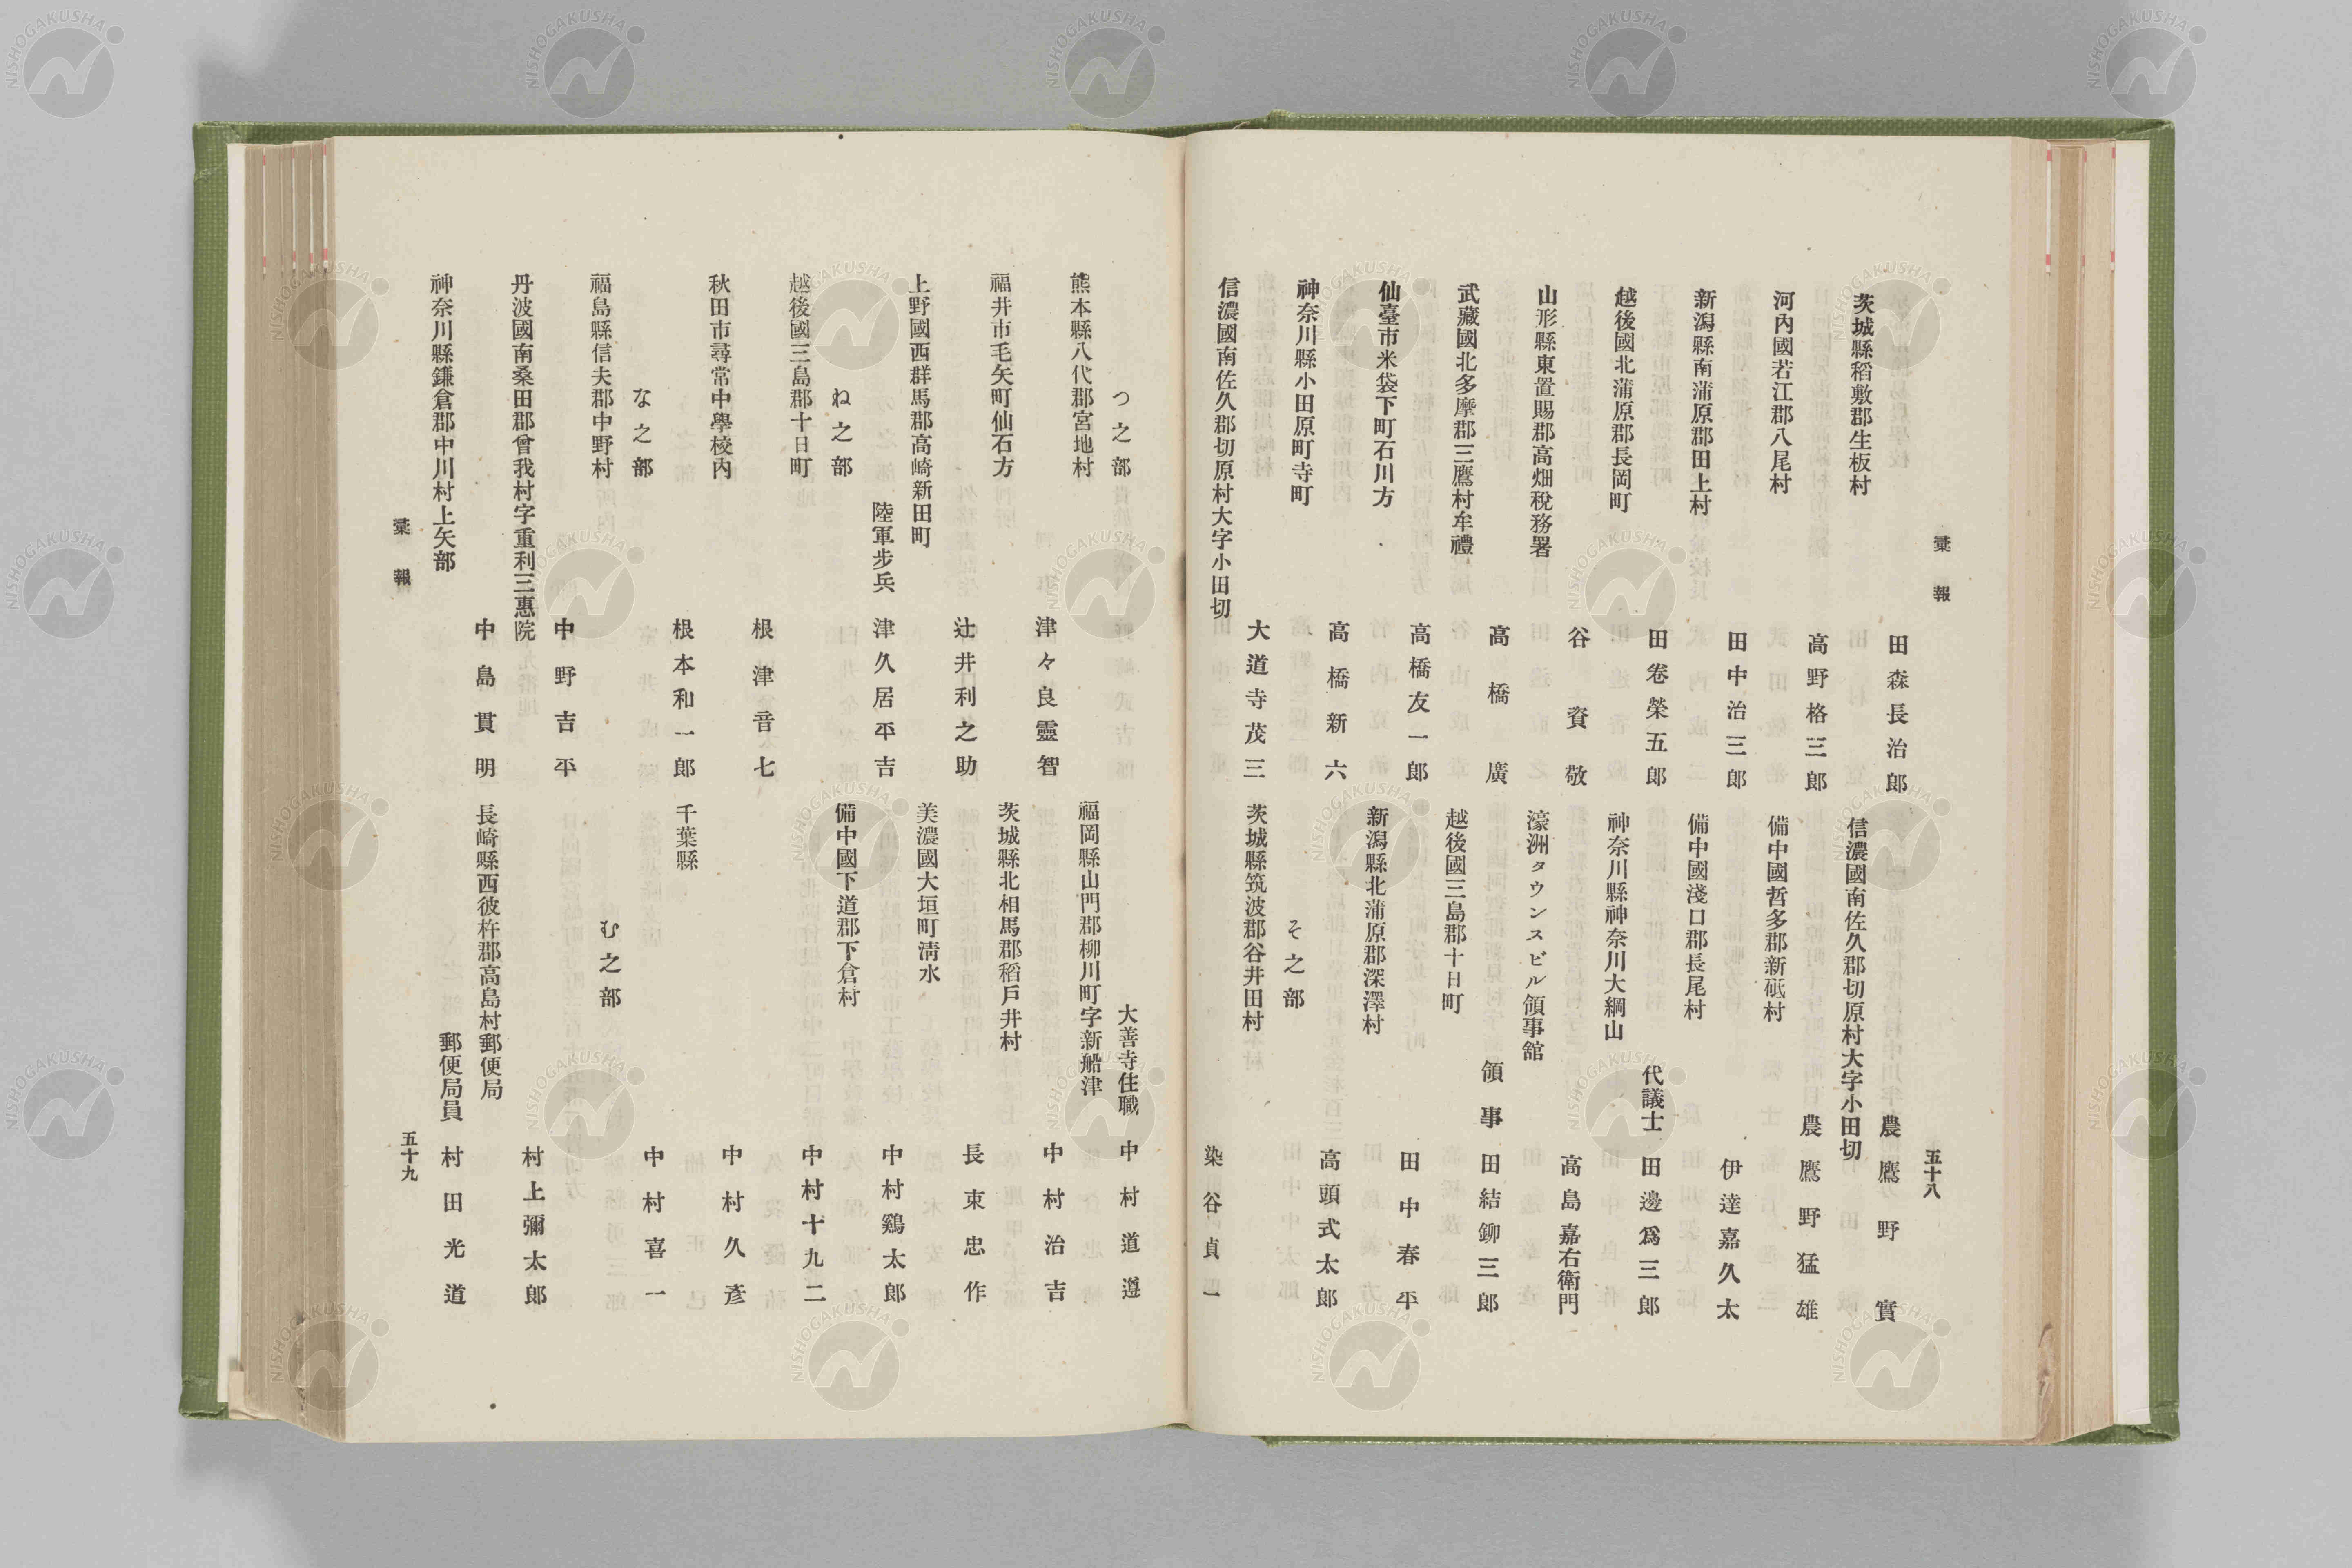 彙報
五十八
田森長治郎
茨城縣稻敷郡生板村
高野格三郎
河內國若江郡八尾村
田中治三郎
新潟縣南蒲原郡田上村
田卷榮五郎
越後國北蒲原郡長岡町
谷資敬
山形縣東置賜郡高畑稅務署
高橋廣
武藏國北多摩郡三鷹村牟禮
高橋友一郎
仙臺市米袋下町石川方
高橋新六
神奈川縣小田原町寺町
大道寺茂三
信濃國南佐久郡切原村大字小田切
農 鷹野實
信濃國南佐久郡切原村大字小田切
農 鷹野猛雄
備中國哲多郡新砥村
伊達嘉久太
備中國淺口郡長尾村
代議士 田邊爲三郎
神奈川縣神奈川大綱山
高島嘉右衛門
濠洲タウンスビル領事舘
領事 田結鉚三郎
越後國三島郡十日町
田中春平
新潟縣北蒲原郡深澤村
高頭式太郎
そ之部
茨城縣筑波郡谷井田村
染谷貞一
つ之部
熊本縣八代郡宮地村
津々良靈智
福井市毛矢町仙石方
辻井利之助
上野國西群馬郡高崎新田町
陸軍步兵 津久居平吉
ね之部
越後國三島郡十日町
根津音七
秋田市尋常中學校內
根本和一郎
な之部
福島縣信夫郡中野村
中野吉平
丹波國南桑田郡曾我村字重利三惠院
中島貫明
神奈川縣鎌倉郡中川村上矢部
大善寺住職 中村道遵
福岡縣山門郡柳川町字新船津
中村治吉
茨城縣北相馬郡稻戶井村
長束忠作
美濃國大垣町淸水
中村鷄太郎
備中國下道郡下倉村
中村十九二
中村久彥
千葉縣
中村喜一
む之部
村上彌太郎
長崎縣西彼杵郡高島村郵便局
郵便局員 村田光道
彙報
五十九
NISHOGAKUSHA